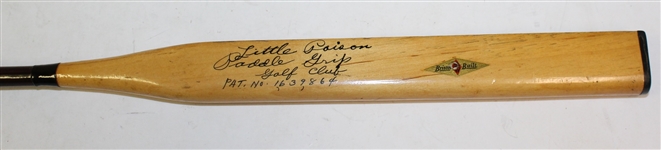 Little Poison
Paddle Grip
Golf Club
PAT. NO. 1639864
Built